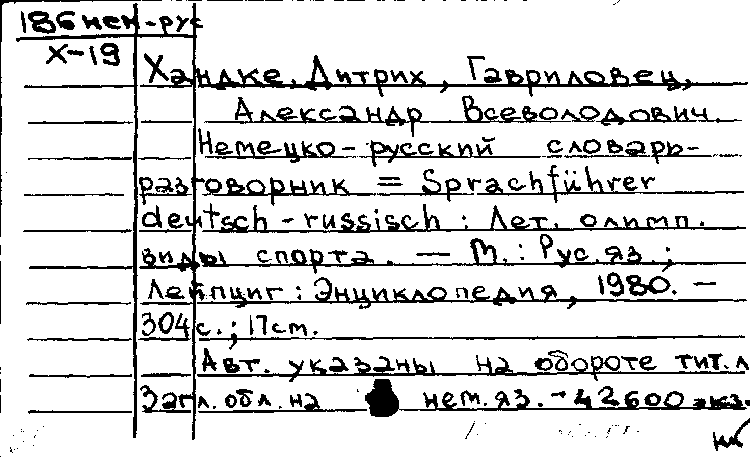 186 нем-рус
Х-19
Хандке, Дитрих, Гавриловец,
Александр Всеволодович.
Немецко-русский словарь-
разговорник = Sprachführer
deutsch-russisch : Лет. олимп.
виды спорта. — М. : Рус. яз. ;
Лейпциг : Энциклопедия, 1980. —
304 с. ; 17 cm.
Авт. указаны на обороте тит. л
Загл. обл. на нем. яз. - 42600 экз.